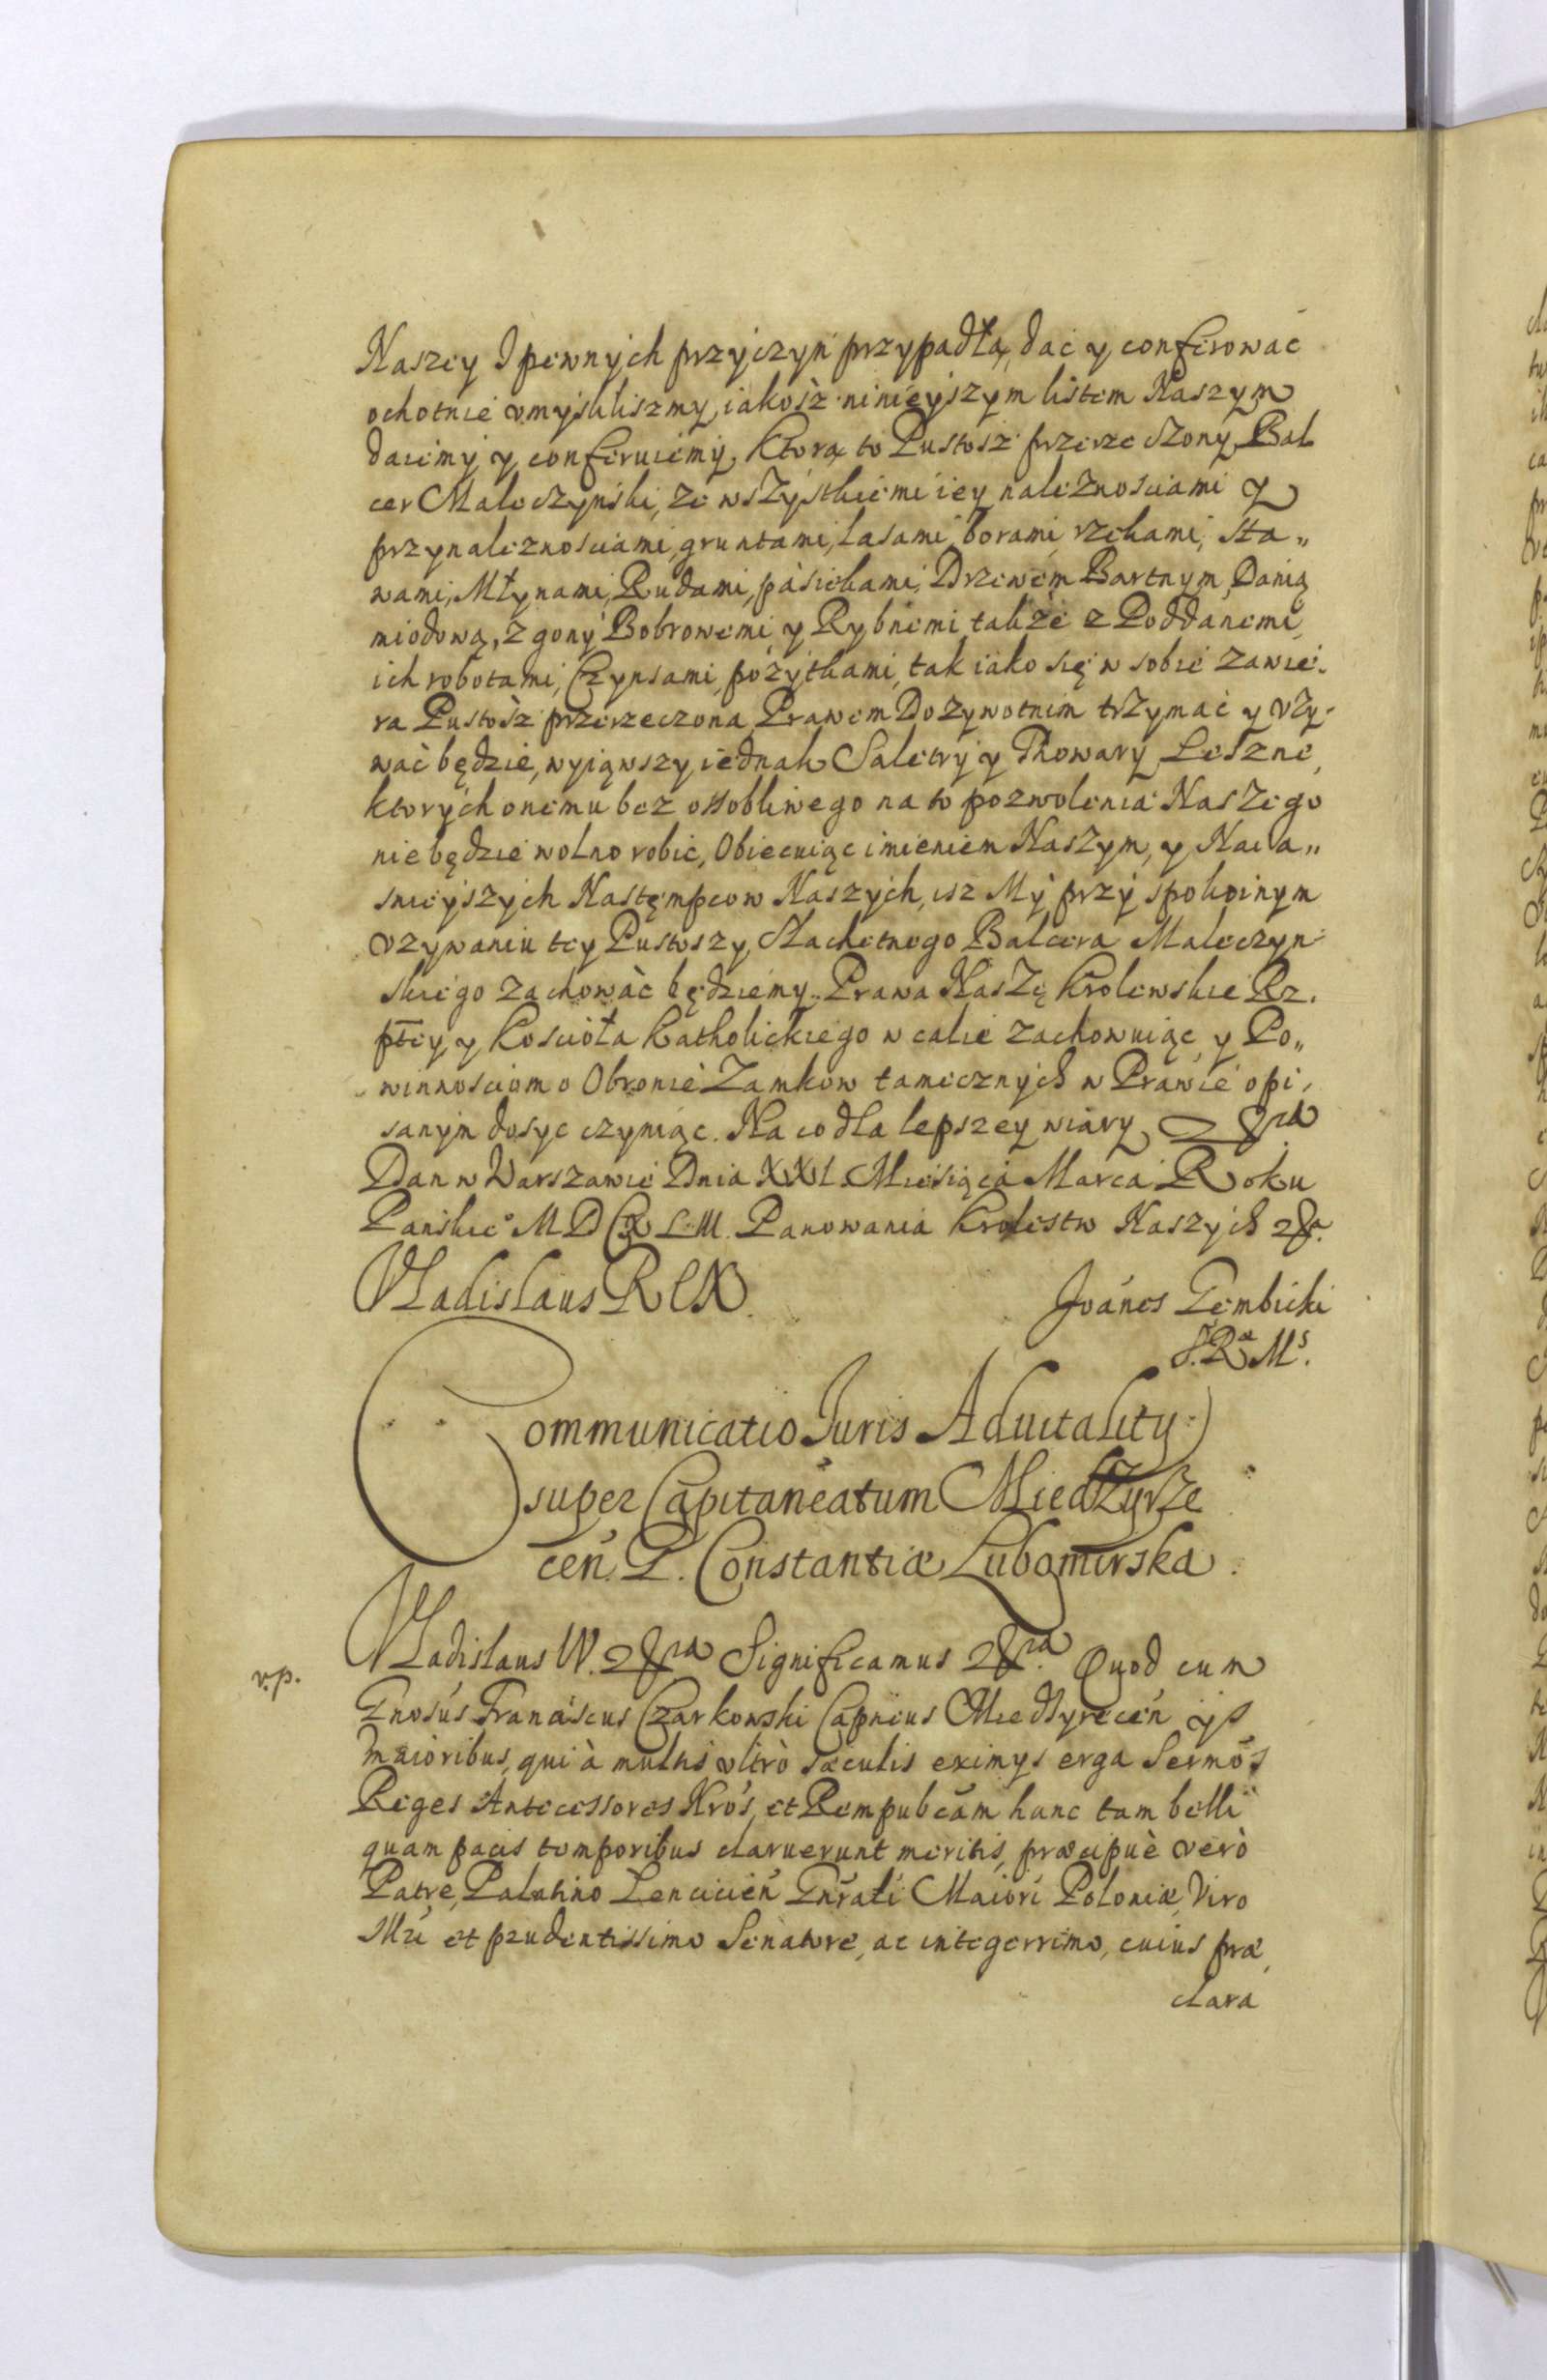 Naszey z pewnych przyczyn przypadła, dać y conferować
ochotnie vmyśliliszmy, iakosz ninieyszym listem Naszym
daiemy y conferuiemy, Ktorą to Pustosz przerzeczony Bal
cer Maleczynski, ze wszystkiemi iey należnosciami y
przynaleznosciami, gruntami, lasami, borami, rzekami, sta„
wami, Młynami, Rudami, pasiekami, Drzewem Bartnym, Danią
miodową, z gony Bobrowemi y Rybnemi, takze z Poddanemi
ich robotami, Czynsami, pozytkami, tak iako się w sobie zawie„
ra Pustosz przerzeczona, Prawem Dozywotnim trzymać y vzy„
wać będzie, wyiąwszy iednak Saletry y Thowary Leszne,
ktorych onemu bez ossobliwego na to pozwolenia Naszego
nie będzie wolno robić, Obiecuiąc imieniem Naszym, y Naia„
snieyszych Nastęmpcow Naszych, isz My przy spokoinym
vzywaniu tey Pustoszy, Slachetnego Balcera Maleczyn„
skiego zachować będziemy. Prawa Naszę Krolewskie Rz.
ptey, y Koscioła Katholickiego w calie zachowuiąc, y Po„
winnosciom o Obronie Zamkow tamecznych w Prawie opi„
sanym dosyc czyniąc. Na co dla lepszey wiary &ra
Dan w Warszawie Dnia XXI Miesiąca Marca Roku
Panskie° MDCXLIII. Panowania Krolestw Naszych &a.
Vladislaus REX
Joānes Gembicki
S. Rae Ms.
Communicatio Juris Aduitality
super Capitaneatum Miedzyrze
cen. G. Constantiæ Lubomirska.
v.p.
Vladislaus IV. &ra Significamus &ra. Quod cum
Gnosus Franciscus Czarkowski Capneus Miedzyrecen ijs
maioribus, qui à multis vltrò sæculis eximys erga Sermos
Reges Antecessores Nros, et Rempubcam hanc tam belli
quam pacis temporibus claruerunt meritis, præcipuè verò
Patre, Palatino Lencicien Gnrali Maiori Poloniæ, Viro
Mci et prudentissimo Senatore, ac integerrimo, cuius præ„
clara